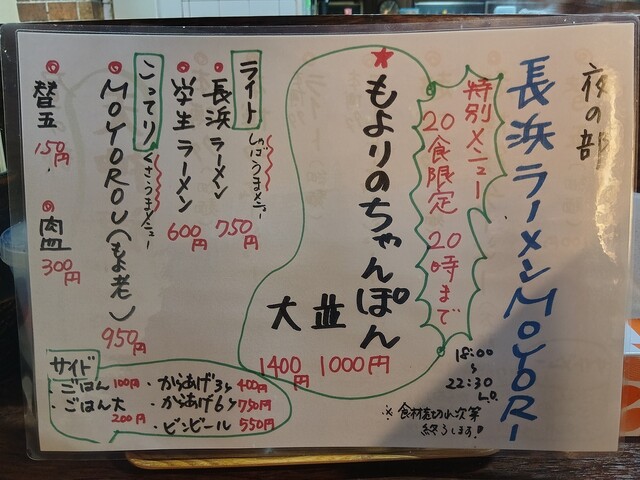 夜の部
長浜ラーメンMOYORI
18:00
〜
22:30
L.O.
※食材売り切れ次第
終了します!
特別メニュー
20食限定 20時まで
★もよりのちゃんぽん
並 1000円
大 1400円
ライト
しゃばうまメニュー
◎長浜ラーメン 750円
◎学生ラーメン 600円
こってり!
くさうまメニュー
◎MOYOROU(もよ老) 950円
◎替玉 150円
◎肉皿 300円
サイド
・ごはん 100円
・ごはん大 200円
・からあげ3ヶ 400円
・からあげ6ヶ 750円
・ビンビール 550円